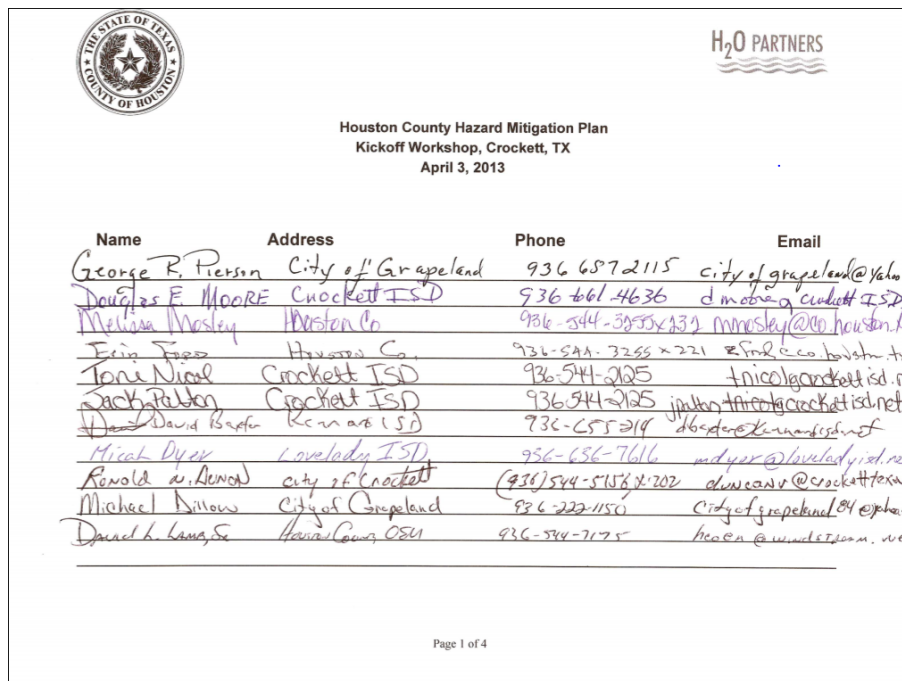 THE STATE OF TEXAS
COUNTY OF HOUSTON
H2O PARTNERS
Houston County Hazard Mitigation Plan
Kickoff Workshop, Crockett, TX
April 3, 2013
Name Address Phone Email
George R. Pierson City of Grapeland 936 687 2115 cityofgrapeland@yahoo
Douglas E. MOORE Crockett ISD 936-661-4636 dmoore@crockettISD
Melissa Mosley Houston Co 936-544-3255x232 mmosley@co.houston.t
Erin Ford Houston Co. 936-544-3255 x 221 eford@co.houston.tx
Toni Nicol Crockett ISD 936-544-2125 tnicol@crockettisd.n
Jack Patton Crockett ISD 936 544-2125 jpatton tnicol@crockettisd.net
David David Baxter Kennard ISD dbaxter@kennardisd.net
Micah Dyer Lovelady ISD 936-636-7616 mdyer@loveladyisd.ne
Ronold N. city of Crockett (936) 544-5156, x.202 duncanr@crocketttexas
Michael Dillow City of Grapeland 936-222-1150 cityofgrapeland84@yahoo
David L. Lamb, Sr Houston County 936-544-7175 hcoem@windstream.ne
Page 1 of 4